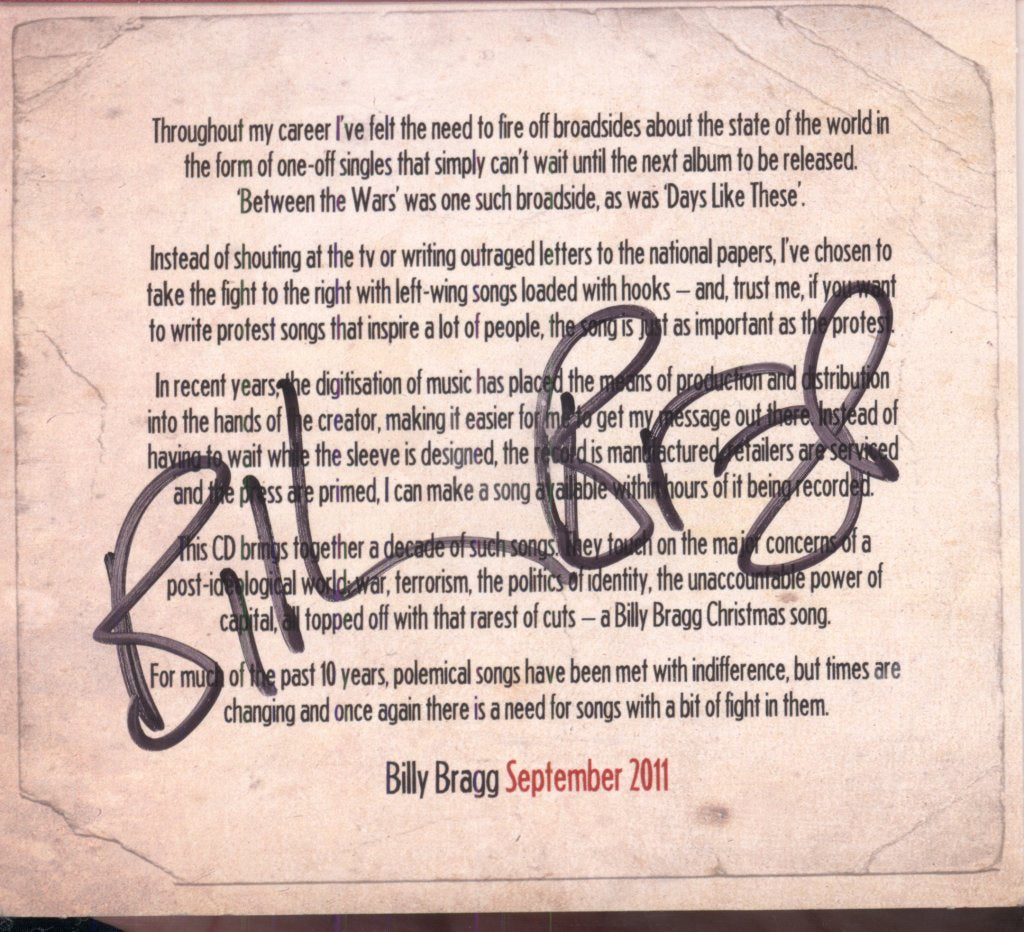 Throughout my career I've felt the need to fire off broadsides about the state of the world in
the form of one-off singles that simply can't wait until the next album to be released.
'Between the Wars' was one such broadside, as was 'Days Like These'.
Instead of shouting at the tv or writing outraged letters to the national papers, I've chosen to
take the fight to the right with left-wing songs loaded with hooks – and, trust me, if you want
to write protest songs that inspire a lot of people, the song is just as important as the protest.
In recent years, the digitisation of music has placed the means of production and distribution
into the hands of the creator, making it easier for me to get my message out there. Instead of
having to wait while the sleeve is designed, the record is manufactured, retailers are serviced
and the press are primed, I can make a song available within hours of it being recorded.
This CD brings together a decade of such songs. They touch on the major concerns of a
post-ideological world: war, terrorism, the politics of identity, the unaccountable power of
capital, all topped off with that rarest of cuts – a Billy Bragg Christmas song.
For much of the past 10 years, polemical songs have been met with indifference, but times are
changing and once again there is a need for songs with a bit of fight in them.
Billy Bragg September 2011
Billy Bragg